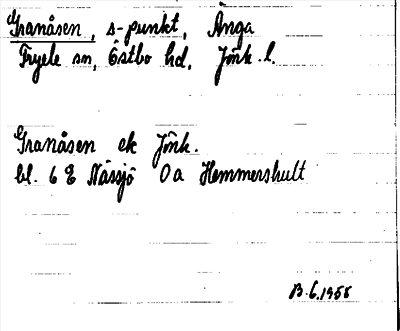 Granåsen, s-punkt, Ånga
Fryele sn, Östbo hd, Jönk. l.
Granåsen ek Jönk.
bl. 6 E Nässjö 0a Hemmershult
B. 6. 1958